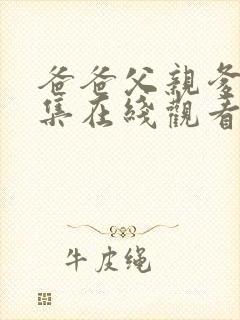 爸爸父親爹
集在綫觀看
牛皮绳